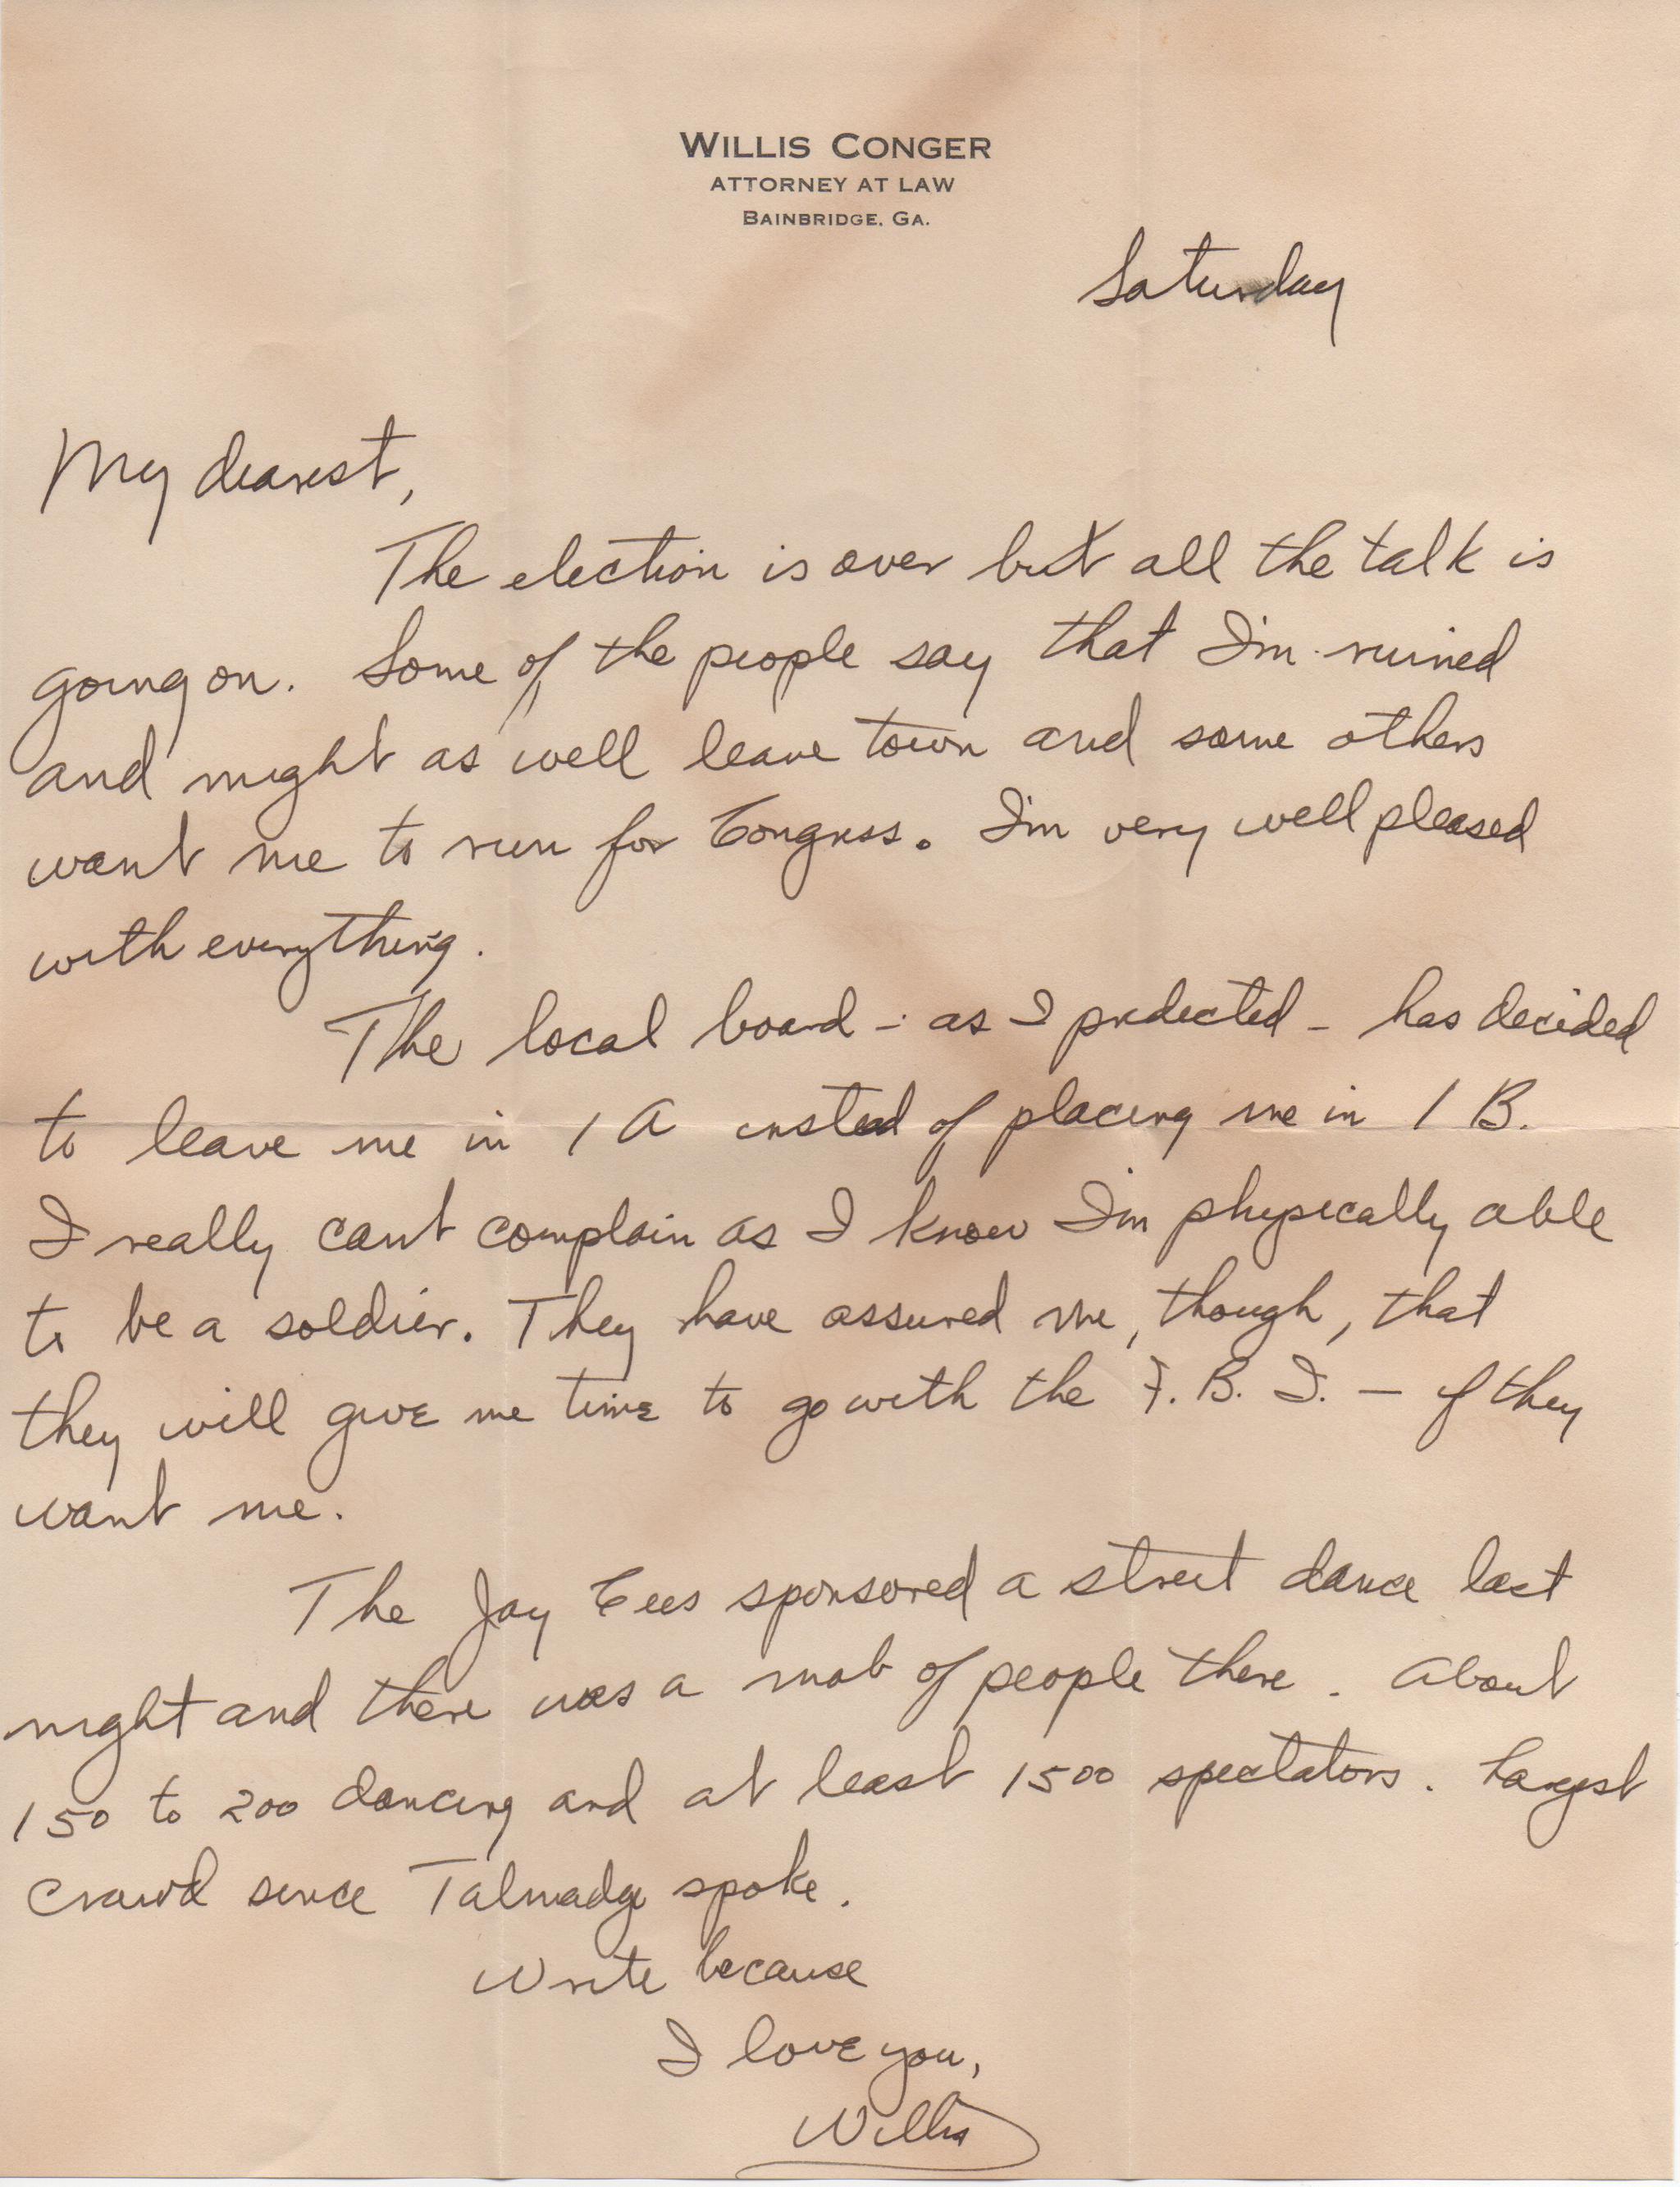 WILLIS CONGER
ATTORNEY AT LAW
BAINBRIDGE, GA.
Saturday
My dearest,
The election is over but all the talk is
going on. Some of the people say that I'm ruined
and might as well leave town and some others
want me to run for Congress. I'm very well pleased
with everything.
The local board - as I predicted - has decided
to leave me in 1 A instead of placing me in 1 B.
I really can't complain as I know I'm physically able
to be a soldier. They have assured me, though, that
they will give me time to go with the F. B. I. - if they
want me.
The Jay Cees sponsored a street dance last
night and there was a mob of people there. About
150 to 200 dancing and at least 1500 spectators. Largest
crowd since Talmadge spoke.
Write because
I love you,
Willis